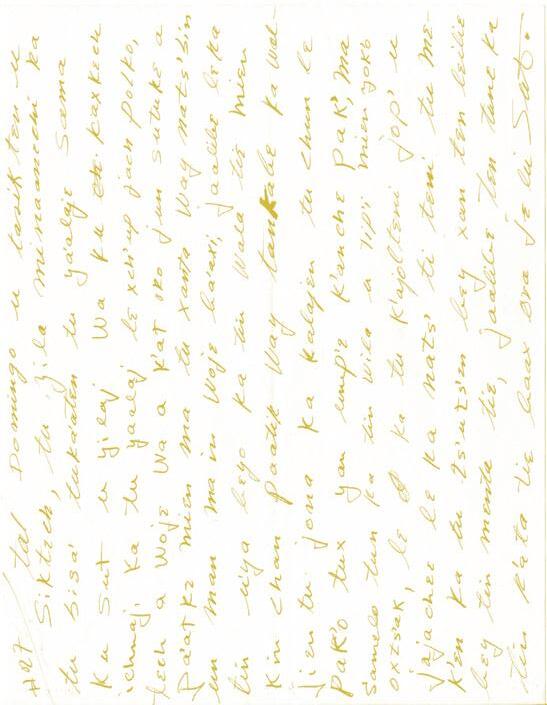 HR7 / tal Domingo u tasik ten u
siktech, tu yila minaanechi ka
tu bisa' tukaaten tu yaalaje sama
Ku sut u yilaj Wa ku ek kaxkech
ichnaj, ka tu yaalaj le xch'up jach polko,
tech a woje wa a k'at oko jun sutuke a
Páatke mien ma tu xanta way nats'bin
un man ma in woje baaxi, jaalibe leka
tin u'ya beyo ka tin wala tie mien
Kin chan paatik way tankabe ka wal-
jien tu jona ka kalajen tu chun le
pak'o tux yan umpe k'anche Pak', ma
samelo tun ka tin wila a vipi mien yoko
oxtsak, le ka tu k'ajolteni jop' u
jajachee le ka nats' ti teni tu me-
ken ka tu ts'uts'en bey xan ten leibe
bey tin menta tie, jaalibe ten tune ka
tin k'ata tie baax ora je li Suto.